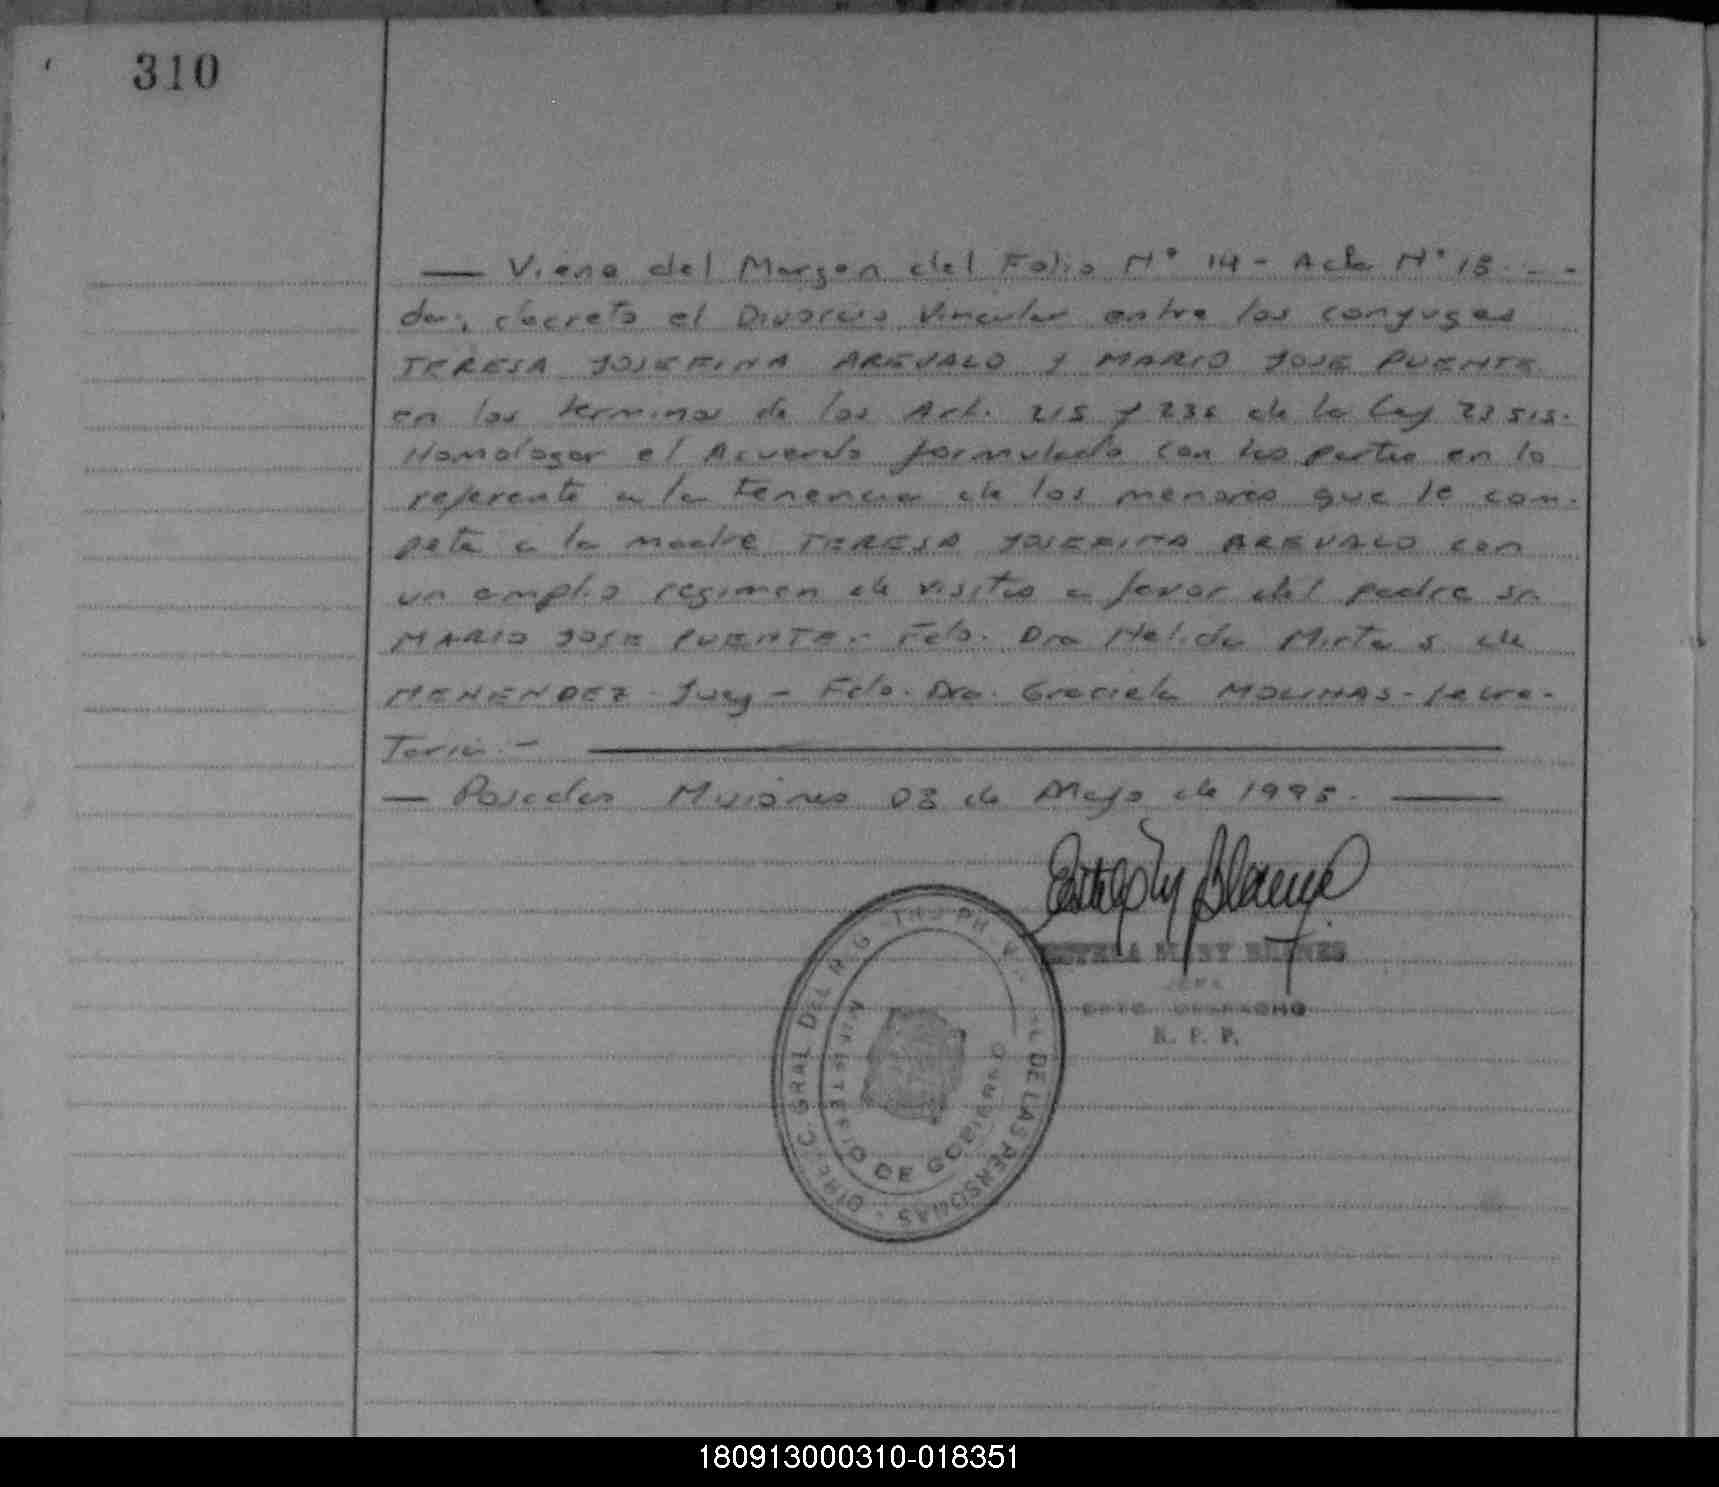 310
— Viene del Margen del Folio N° 14 - Acta N° 15 - -
da; decreto el Divorcio Vincular entre los conyuges
TERESA JOSEFINA AREVALO y MARIO JOSE PUENTE
en los terminos de los Art. 215 y 236 de la Ley 23515.
Homologar el Acuerdo formulado con las partes en lo
referente a la tenencia de los menores que le com-
pete a la madre TERESA JOSEFINA AREVALO con
un amplio regimen de visitas a favor del padre Sr.
MARIO JOSE PUENTE.- Fdo. Dra Helida Mirta S de
MENENDEZ - Juez - Fdo. Dra. Graciela MOLINAS - Secre-
taria.-
— Posadas Misiones 03 de Mayo de 1995. —
MARY
DPTO DESPACHO
R. P. P.
DIREC. GRAL DEL REG. DE LAS PERSONAS
MINISTERIO DE GOBIERNO
180913000310-018351